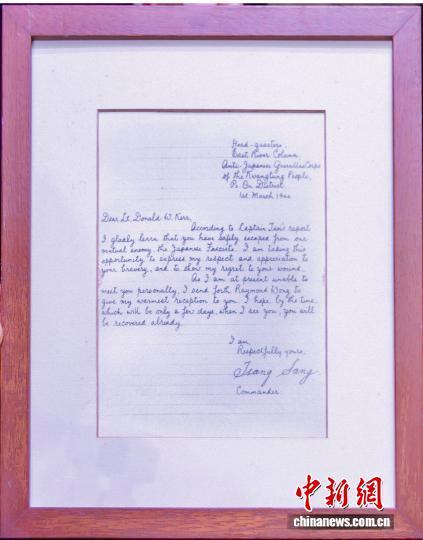 Head-quarters,
East River Column
Anti-Japanese Guerrillas Corps
of the Kwangtung People,
Po On District.
1st March 1944
Dear Lt. Donald W. Kerr,
According to Captain Tan's report
I gladly learn that you have safely escaped from our
mutual enemy, the Japanese Fascists. I am taking this
opportunity to express my respect and appreciation to
your bravery, and to show my regret to your wound.
As I am at present unable to
meet you personally, I send forth Raymond Wong to
give my warmest reception to you. I hope, by the time,
which will be only a few days, when I see you, you will
be recovered already.
I am,
Respectfully yours,
Tsang Sang
Commander
中新网
chinanews.com.cn